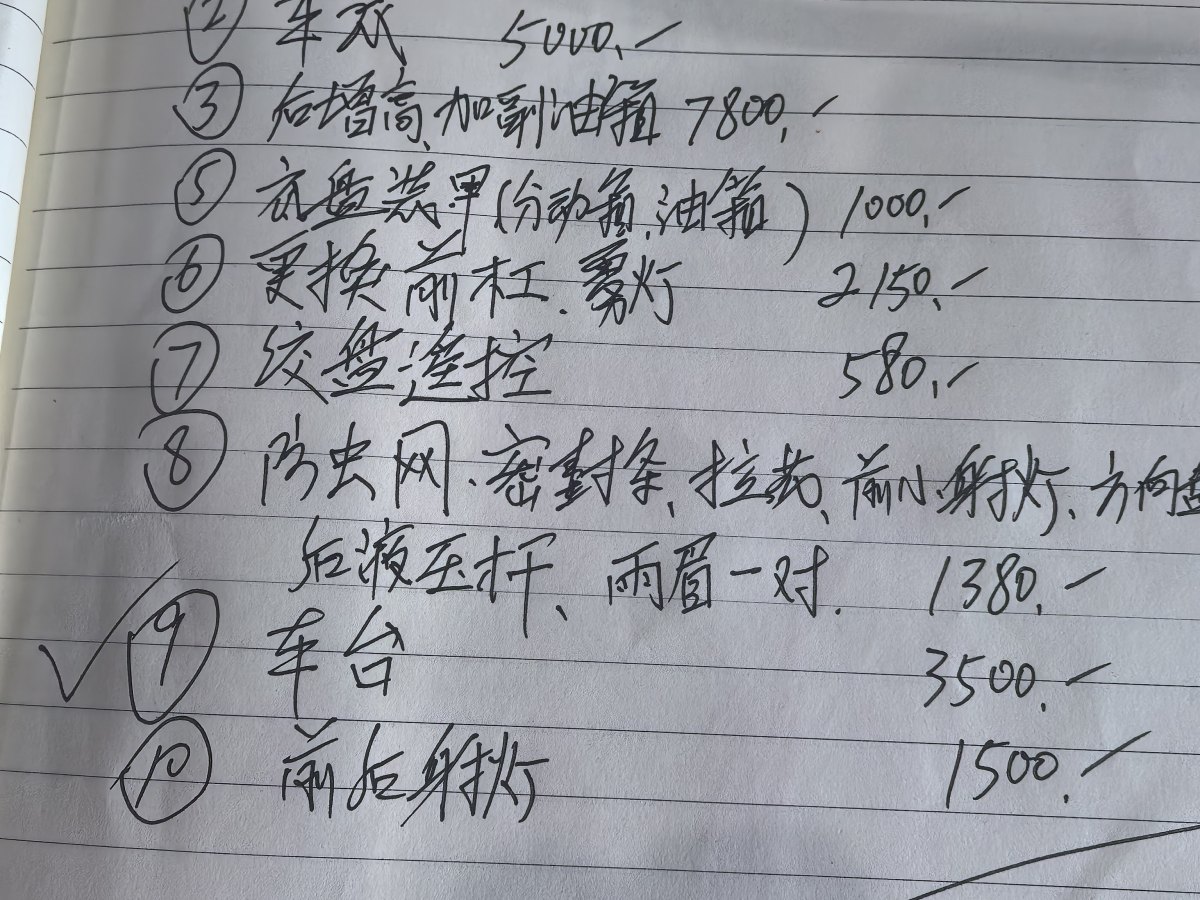 ② 车 5000.-
③ 后增高、加副油箱 7800.-
⑤ 底盘装甲(分动箱、油箱) 1000.-
⑥ 更换前杠、雾灯 2150.-
⑦ 绞盘遥控 580.-
⑧ 防虫网、密封条、拉、前小射灯、方向盘
后液压杆、雨眉一对. 1380.-
✓ ⑨ 车台 3500.-
⑩ 前后射灯 1500.-